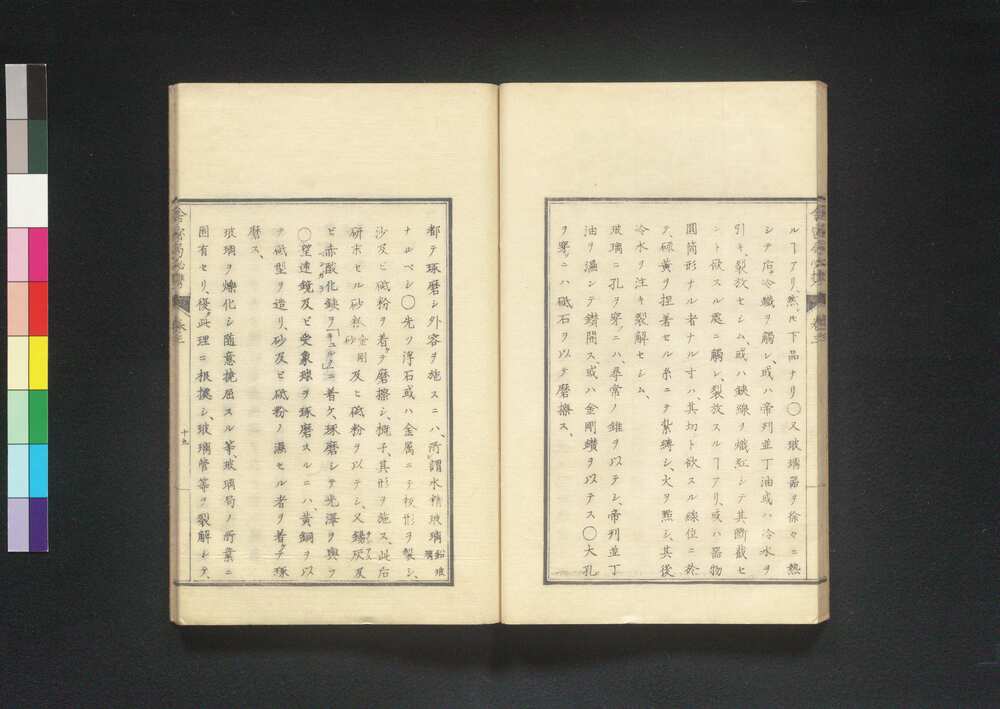 ルヿアリ、然ル下品ナリ〇又玻璃器ヲ徐々ニ熱
シテ后、冷蠟ヲ觸レ、或ハ帝列並丁油或ハ冷水ヲ
引キ、裂放セシム、或ハ鉄線ヲ熾紅シテ其斷截セ
ント欲スル處ニ觸レ、裂放スルヿアリ、或ハ器物
圓筒形ナル者ナル寸ハ、其切ト欲スル線位ニ於
テ、硫黄ヲ捏着セル糸ニテ紮縛シ、火ヲ點シ、其後
冷水ヲ注キ裂解セシム、
玻璃ニ孔ヲ穿ニハ、尋常ノ錐ヲ以テシ、帝列並丁
油ヲ濕シテ鑚開ス、或ハ金剛鑚ヲ以テス〇大孔
ヲ穿ニハ砥石ヲ以テ磨擦ス、
都テ琢磨シ外容ヲ施スニハ、所謂水精玻璃鉛玻璃
ナルベシ〇先ツ浮石或ハ金属ニテ板形ヲ製シ、
沙及ヒ砥粉ヲ着テ磨擦シ、概子、其形ヲ施ス、此后
研末セル砂金剛砂及ヒ砥粉ヲ以テシ、又錫灰及
ヒ赤酸化鉄ヲ「キュルク」ニ着ケ、琢磨シテ光澤ヲ與フ
〇望遠鏡及ヒ受象球ヲ琢磨スルニハ、黄銅ヲ以
テ砥型ヲ造リ、砂及ヒ砥粉ノ濕セル者ヲ着テ琢
磨ス、
玻璃ヲ爍化シ随意撓屈スル等、玻璃局ノ所業ニ
固有セリ、後此理ニ根據シ、玻璃管等ヲ裂解シテ、
卷三
十九